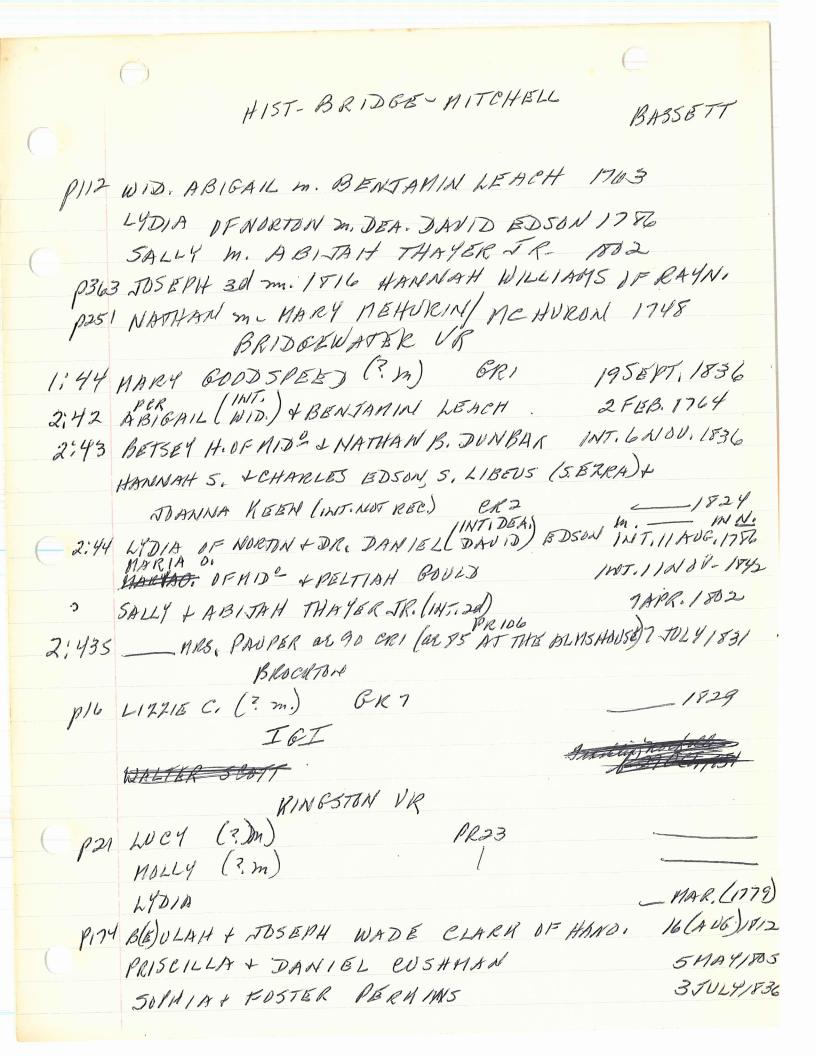 HIST- BRIDGE - MITCHELL BASSETT
p112 WID. ABIGAIL m. BENJAMIN LEACH 1763
LYDIA OF NORTON m. DEA. DAVID EDSON 1786
SALLY m. ABIJAH THAYER JR- 1802
p363 JOSEPH 3d m. 1816 HANNAH WILLIAMS OF RAYN.
p251 NATHAN m- MARY MEHURIN/MCHURON 1748
BRIDGEWATER VR
1:44 MARY GOODSPEED (?m) GR1 19 SEPT. 1836
PER (INT.
2:42 ABIGAIL WID.) & BENJAMIN LEACH . 2 FEB. 1764
2:43 BETSEY H. OF MIDº & NATHAN B. DUNBAR INT. 6 NOV. 1836
HANNAH S. & CHARLES EDSON, S. LIBEUS (S. EZRA) &
JOANNA KEEN (INT. NOT REC.) CR2 —— 1824
(INT. DEA. m. —— IN N.
2:44 LYDIA OF NORTON & DR. DANIEL DAVID) EDSON INT. 11 AUG. 1786
MARIA O.
OF MIDº & PELTIAH GOULD INT. 11 NOV- 1842
SALLY & ABIJAH THAYER JR. (INT. 2d) 7 APR. 1802
PR106
2:435 —— MRS. PAUPER ae 90 CR1 (ae 85 AT THE ALMSHOUSE) 7 JULY 1831
BROCKTON
p16 LIZZIE C. (? m.) GR7 —— 1829
IGI
WALTER SCOTT
KINGSTON VR
p21 LUCY (?m) PR23 ——
MOLLY (?m) | ——
LYDIA — MAR. (1779)
p174 B(E)ULAH & JOSEPH WADE CLARK OF HANO. 16 (AUG) 1812
PRISCILLA & DANIEL CUSHMAN 5 MAY 1805
SOPHIA & FOSTER PERKINS 3 JULY 1836